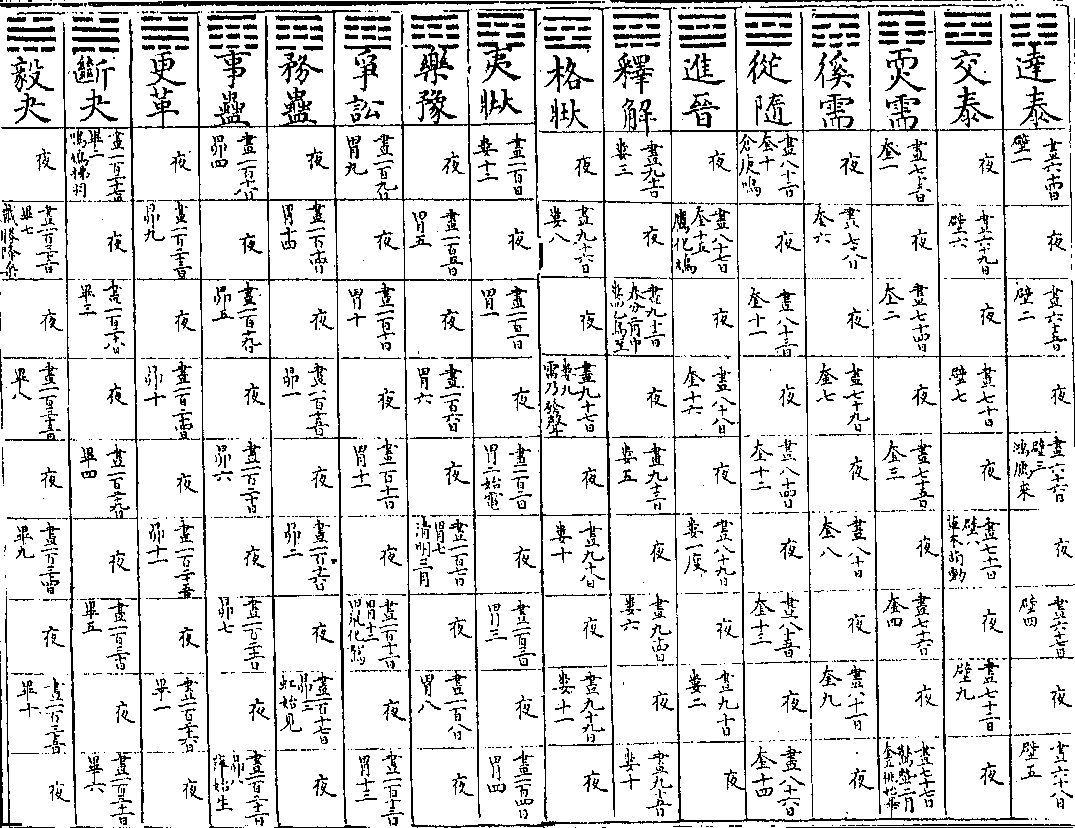 達泰
晝六十四日
壁一
夜
晝六十五日
壁二
夜
晝六十六日
壁三
鴻鴈來
夜
晝六十七日
壁四
夜
晝六十八日
壁五
交泰
夜
晝六十九日
壁六
夜
晝七十日
壁七
夜
晝七十一日
壁八
草木萌動
夜
晝七十二日
壁九
夜
耎需
晝七十三日
奎一
夜
晝七十四日
奎二
夜
晝七十五日
奎三
夜
晝七十六日
奎四
夜
晝七十七日
驚蟄二月
奎五桃始華
徯需
夜
晝七十八日
奎六
夜
晝七十九日
奎七
夜
晝八十日
奎八
夜
晝八十一日
奎九
夜
從隨
晝八十二日
奎十
倉庚鳴
夜
晝八十三日
奎十一
夜
晝八十四日
奎十二
夜
晝八十五日
奎十三
夜
晝八十六日
奎十四
進晉
夜
晝八十七日
奎十五
鷹化鳩
夜
晝八十八日
奎十六
夜
晝八十九日
婁一度
夜
晝九十日
婁二
夜
釋解
晝九十一日
婁三
夜
晝九十二日
春分二月中
婁四玄鳥至
夜
晝九十三日
婁五
夜
晝九十四日
婁六
夜
晝九十五日
婁七
格壯
夜
晝九十六日
婁八
夜
晝九十七日
婁九
雷乃發聲
夜
晝九十八日
婁十
夜
晝九十九日
婁十一
夜
夷壯
晝一百日
婁十二
夜
晝一百一日
胃一
夜
晝一百二日
胃二始電
夜
晝一百三日
胃三
夜
晝一百四日
胃四
樂豫
夜
晝一百五日
胃五
夜
晝一百六日
胃六
夜
晝一百七日
胃七
清明三月
夜
晝一百八日
胃八
夜
爭訟
晝一百九日
胃九
夜
晝一百十日
胃十
夜
晝一百十一日
胃十一
夜
晝一百十二日
胃十二
田鼠化鴽
夜
晝一百十三日
胃十三
務蠱
夜
晝一百十四日
胃十四
夜
晝一百十五日
昴一
夜
晝一百十六日
昴二
夜
晝一百十七日
昴三
虹始見
夜
事蠱
晝一百十八日
昴四
夜
晝一百十九日
昴五
夜
晝一百二十日
昴六
夜
晝一百二十一日
昴七
夜
晝一百二十二日
昴八
萍始生
更革
夜
晝一百二十三日
昴九
夜
晝一百二十四日
昴十
夜
晝一百二十五日
昴十一
夜
晝一百二十六日
畢一
夜
斷夬
晝一百二十七日
畢二
鳴鳩拂羽
夜
晝一百二十八日
畢三
夜
晝一百二十九日
畢四
夜
晝一百三十日
畢五
夜
晝一百三十一日
畢六
毅夬
夜
晝一百三十二日
畢七
戴勝降桑
夜
晝一百三十三日
畢八
夜
晝一百三十四日
畢九
夜
晝一百三十五日
畢十
夜